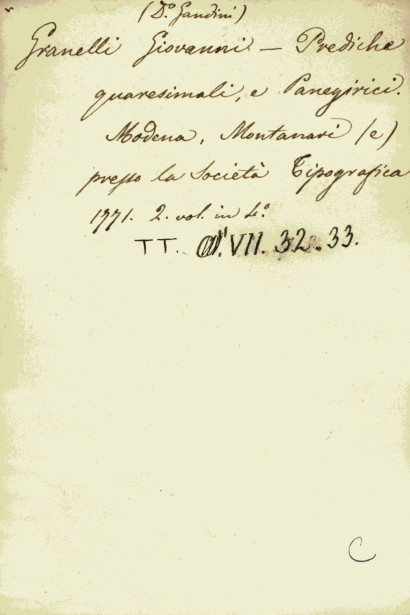 (D.º Gandini)
Granelli Giovanni — Prediche
quaresimali, e Panegirici.
Modena, Montanari (e)
presso la Società Tipografica
1771. 2. vol. in 4.º
TT. VII. 32. 33.
C